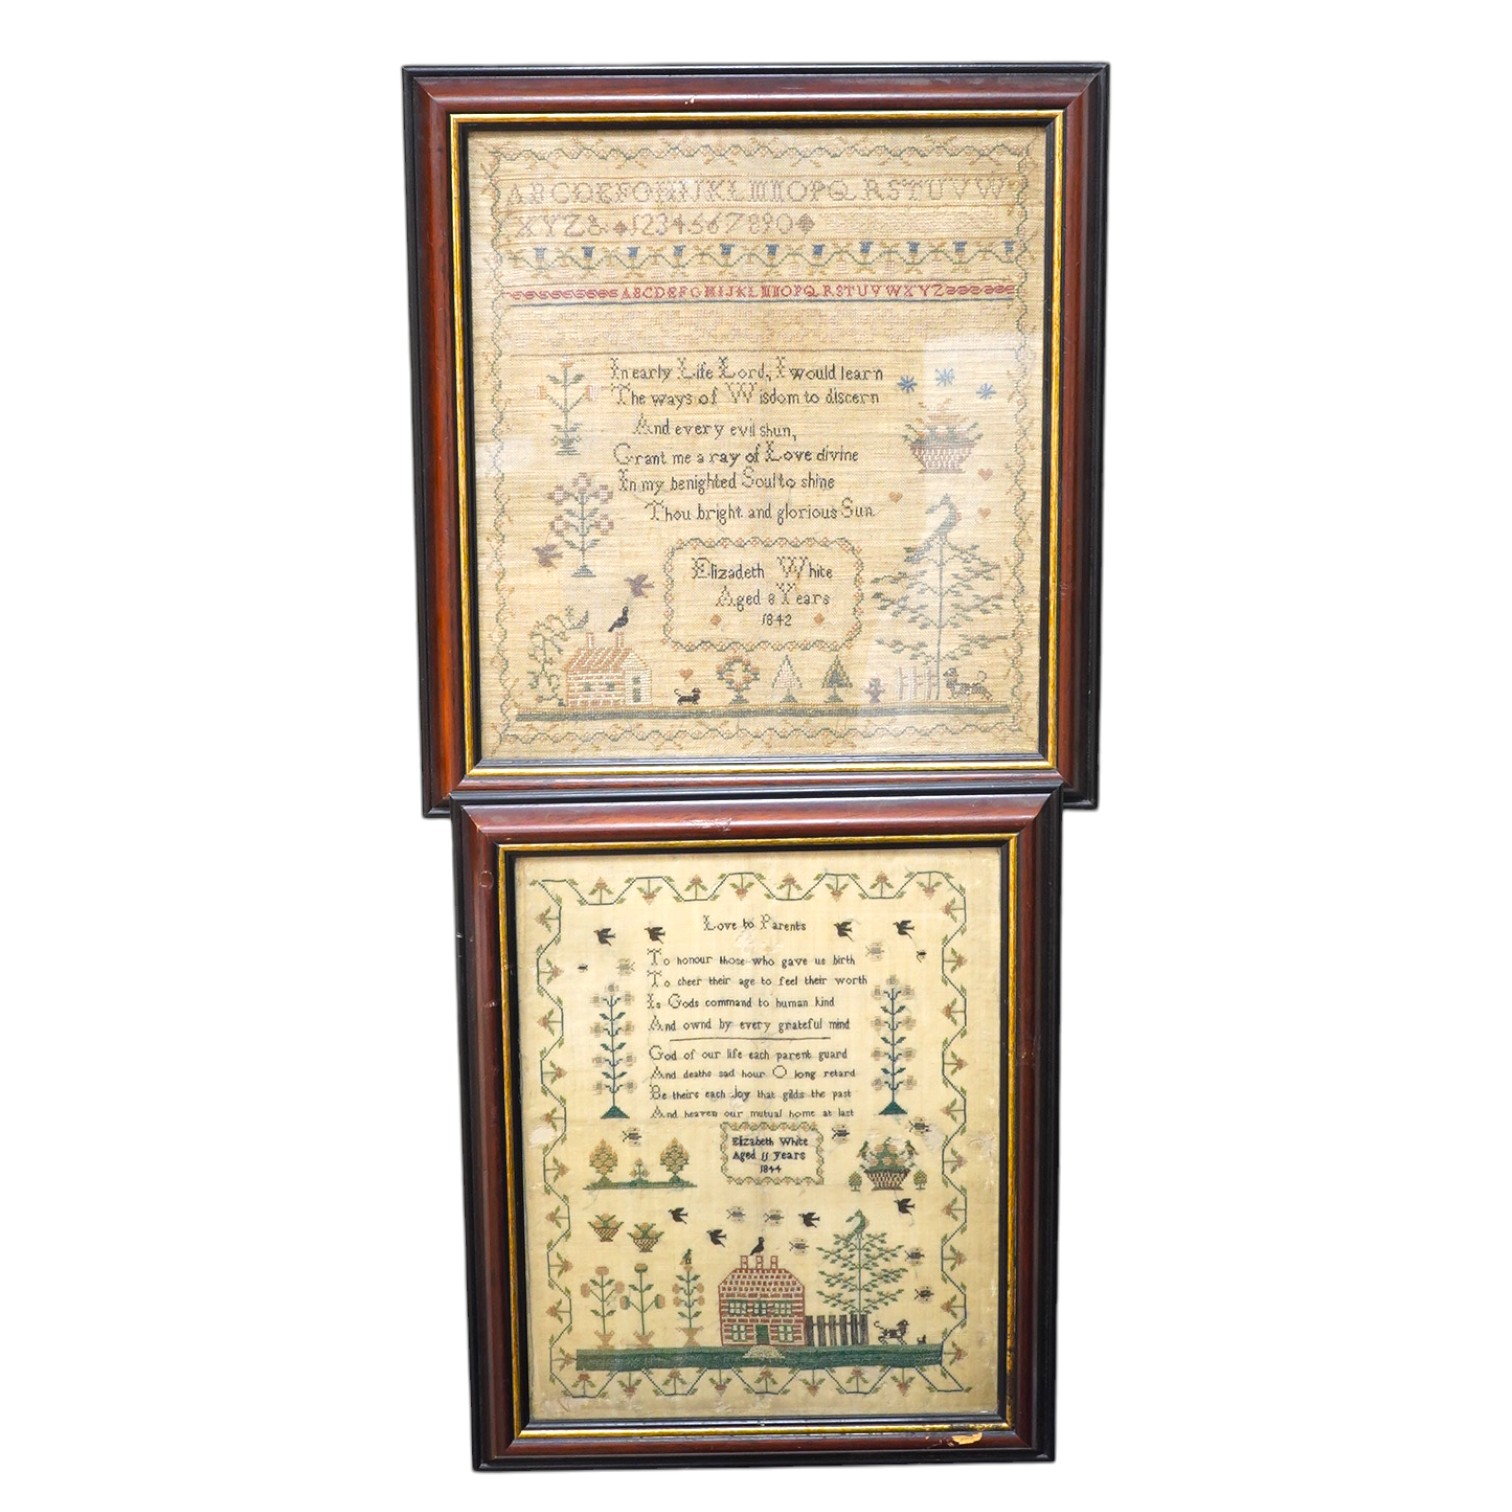 ABCDEFGHIJKLMNOPQRSTUVW
XYZ& 1234567890
ABCDEFGHIJKLMNOPQRSTUVWXYZ
In early Life Lord, I would learn
The ways of Wisdom to discern
And every evil shun,
Grant me a ray of Love divine
In my benighted Soul to shine
Thou bright and glorious Sun
Elizadeth White
Aged 8 Years
1842
Love to Parents
To honour those who gave us birth
To cheer their age to feel their worth
Is Gods command to human kind
And ownd by every grateful mind
God of our life each parent guard
And deaths sad hour O long retard
Be theirs each Joy that gilds the past
And heaven our mutual home at last
Elizabeth White
Aged 11 Years
1844